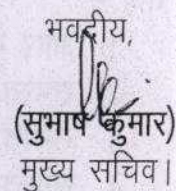 भवदीय,
(सुभाष कुमार)
मुख्य सचिव।